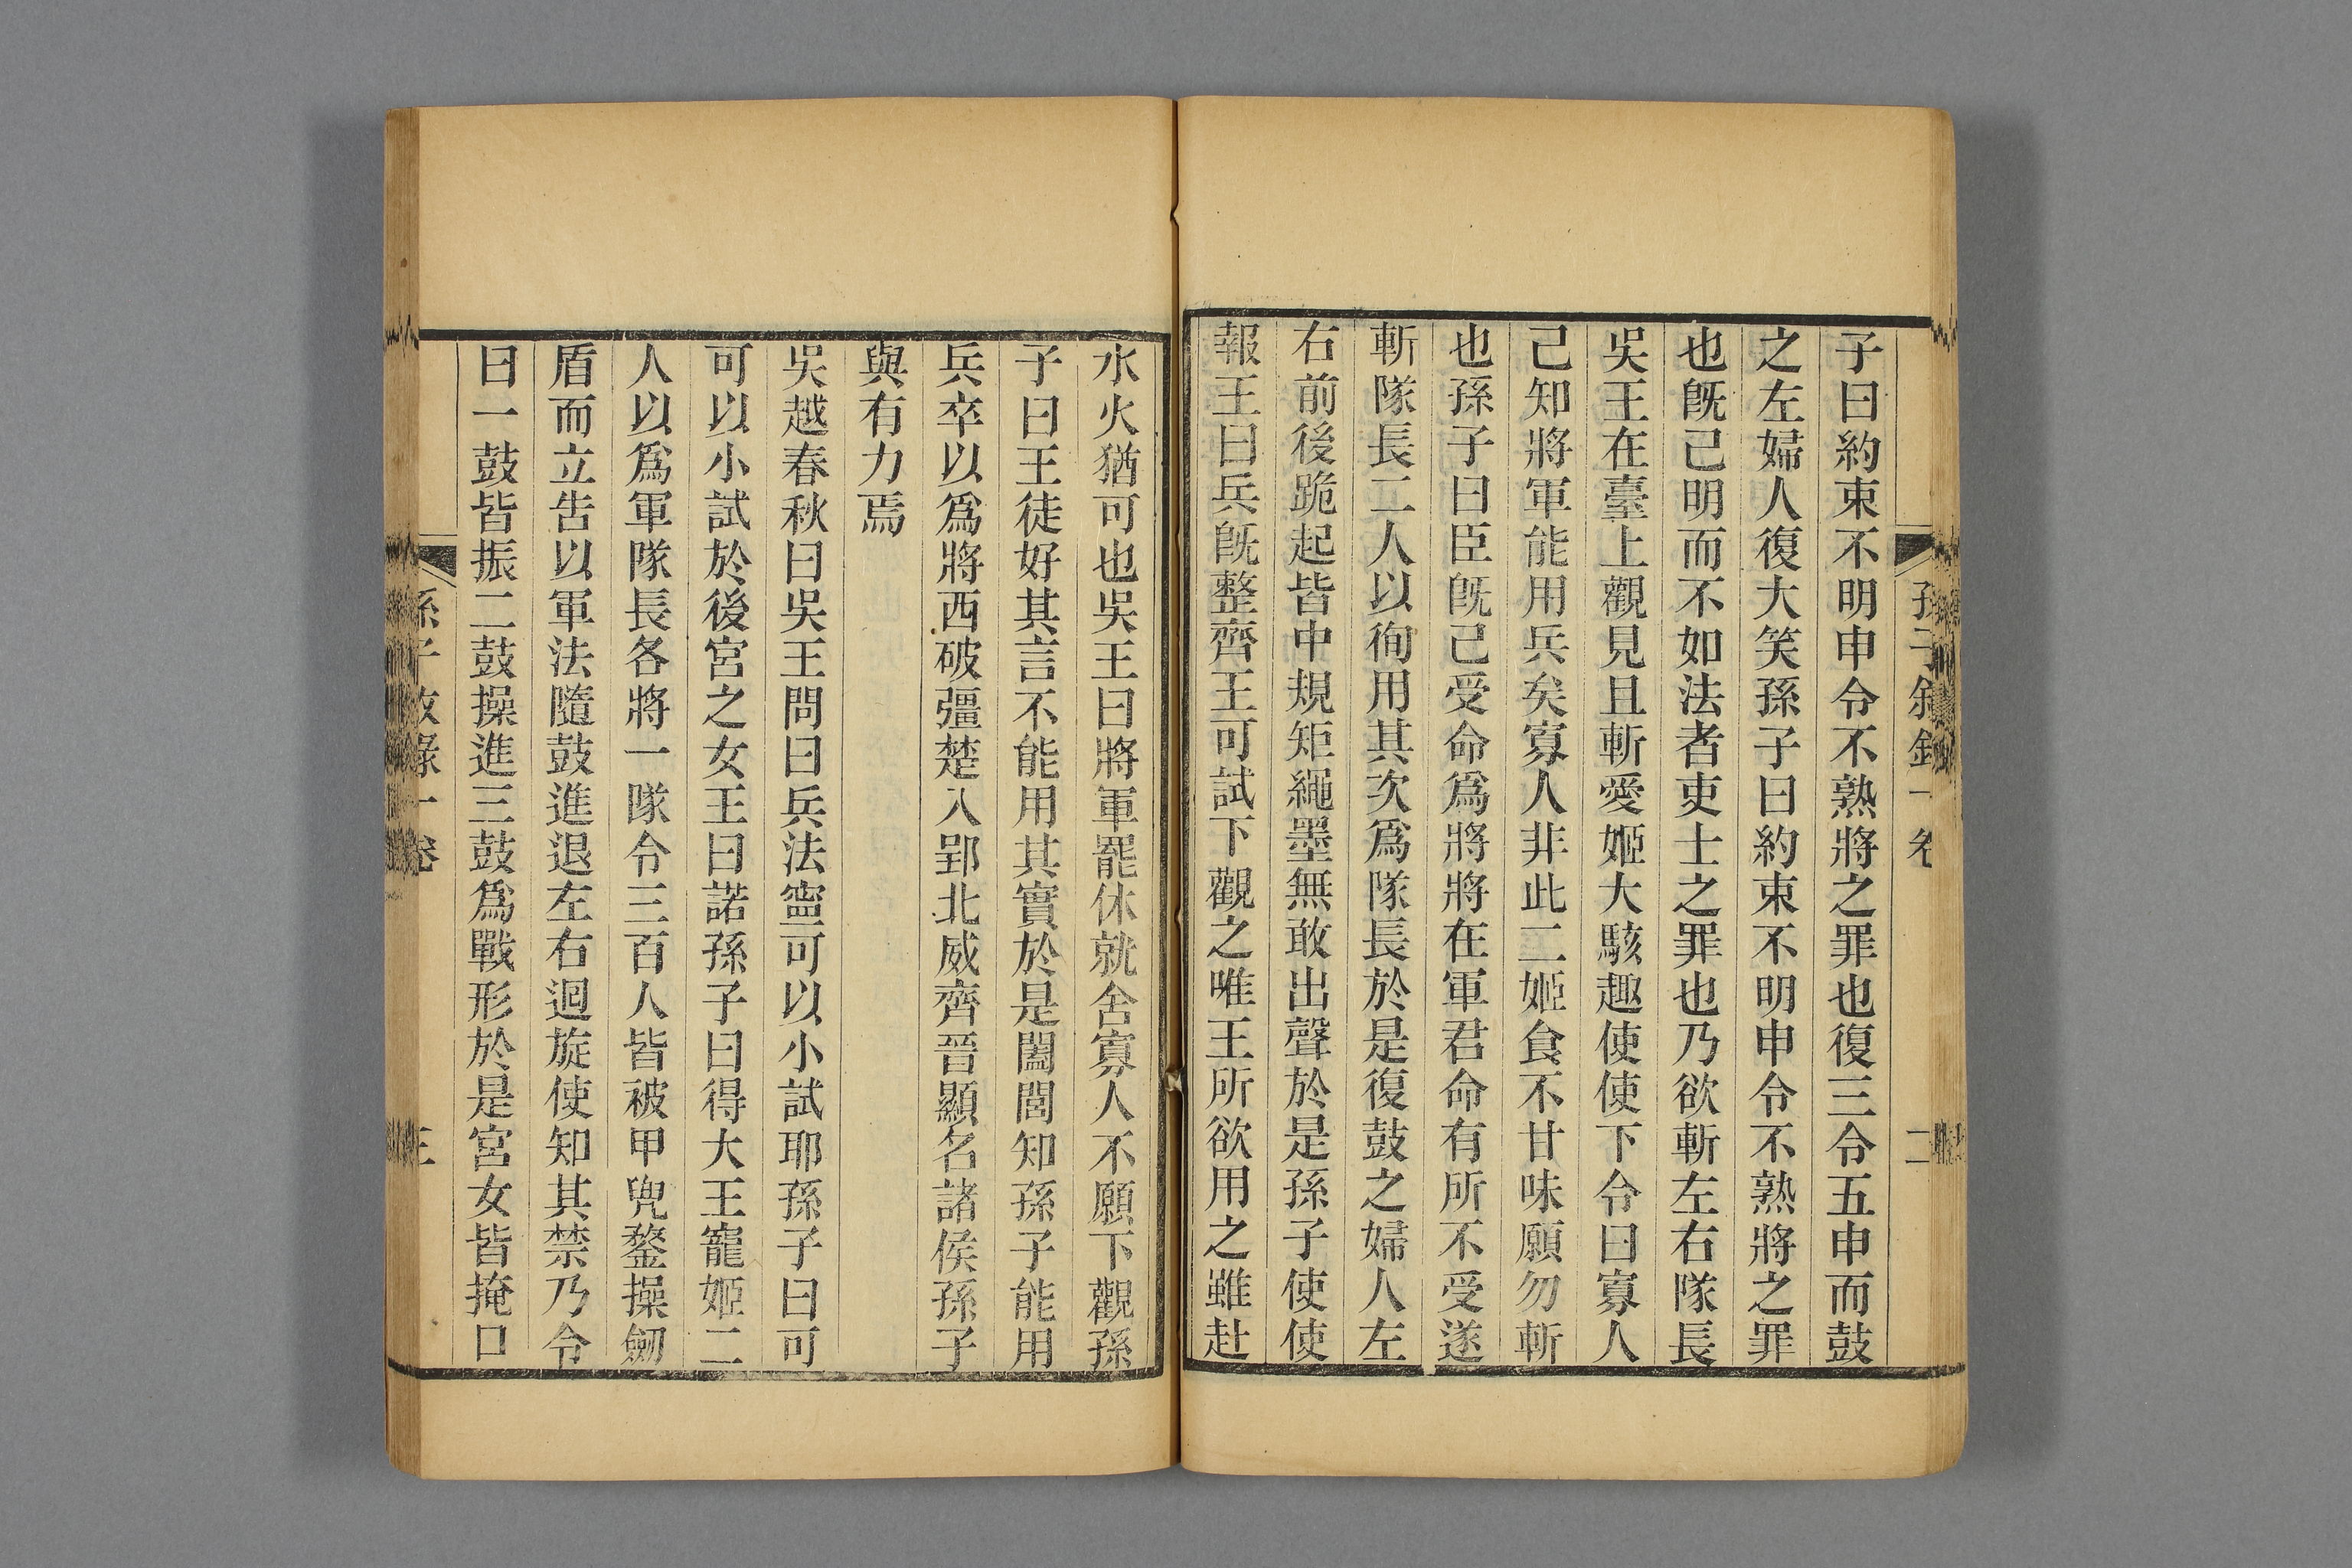 孫子敘錄一卷
二
子曰約束不明申令不熟將之罪也復三令五申而鼓
之左婦人復大笑孫子曰約束不明申令不熟將之罪
也旣已明而不如法者吏士之罪也乃欲斬左右隊長
吳王在臺上觀見且斬愛姬大駭趣使使下令曰寡人
已知將軍能用兵矣寡人非此二姬食不甘味願勿斬
也孫子曰臣旣已受命爲將將在軍君命有所不受遂
斬隊長二人以徇用其次爲隊長於是復鼓之婦人左
右前後跪起皆中規矩繩墨無敢出聲於是孫子使使
報王曰兵旣整齊王可試下觀之唯王所欲用之雖赴
水火猶可也吳王曰將軍罷休就舍寡人不願下觀孫
子曰王徒好其言不能用其實於是闔閭知孫子能用
兵卒以爲將西破彊楚入郢北威齊晉顯名諸侯孫子
與有力焉
吳越春秋曰吳王問曰兵法寧可以小試耶孫子曰可
可以小試於後宮之女王曰諾孫子曰得大王寵姬二
人以爲軍隊長各將一隊令三百人皆被甲兜鍪操劒
盾而立告以軍法隨鼓進退左右迴旋使知其禁乃令
曰一鼓皆振二鼓操進三鼓爲戰形於是宮女皆掩口
孫子敘錄一卷
三